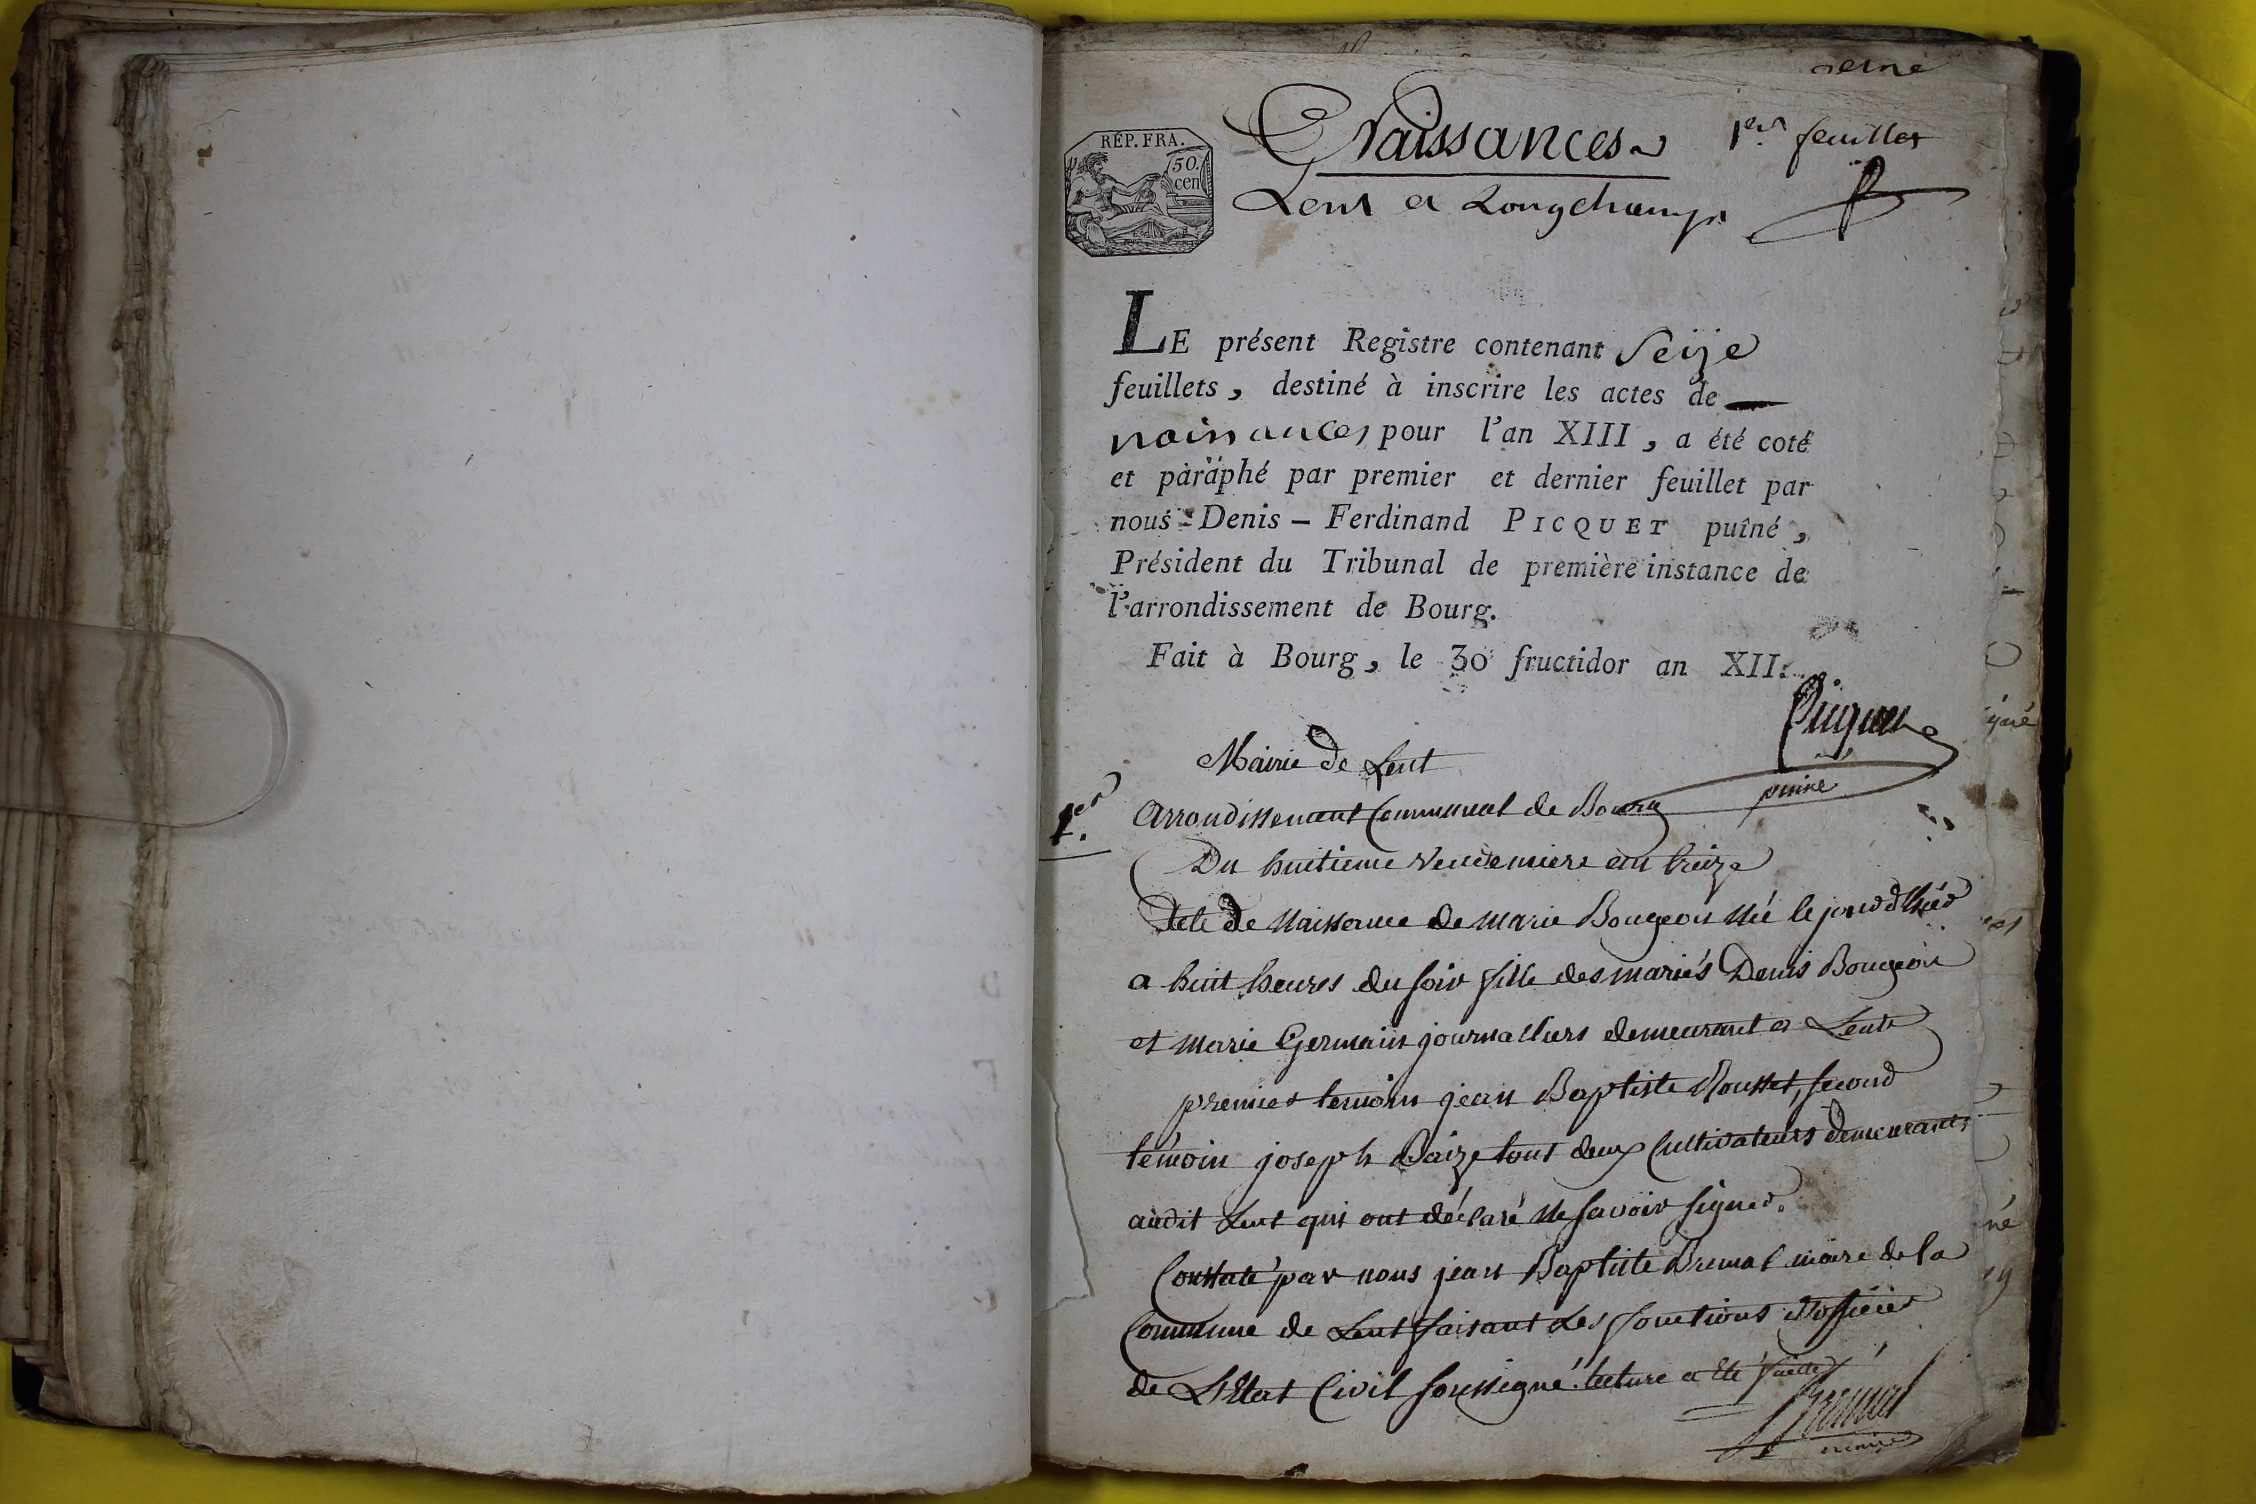 Naissances
1er feuillet
RÉP. FRA.
50.
cen
Lent et Longchamps
LE présent Registre contenant Seize
feuillets, destiné à inscrire les actes de
naissances pour l'an XIII, a été coté
et paraphé par premier et dernier feuillet par
nous Denis-Ferdinand PICQUET puîné,
Président du Tribunal de première instance de
l'arrondissement de Bourg.
Fait à Bourg, le 30 fructidor an XII.
Picquet
puiné
Mairie de Lent
1er
Arrondissement Communal de Bourg
Du huitieme Vendemiere an treize
Acte de Naissance de marie Bougeon Née le jour d'hier
a huit heures du soir fille des mariés Denis Bougeon
et marie Germain journalliers demeurant a Lent
premier temoin jean Baptiste Rousset, second
témoin joseph Baize tout deux Cultivateurs demeurants
audit Lent qui ont déclaré Ne savoir signer.
Constaté par nous jean Baptiste Brunal maire de la
Commune de Lent faisant Les fonctions d'officier
de L'Etat Civil soussigné. lecture a Eté faite